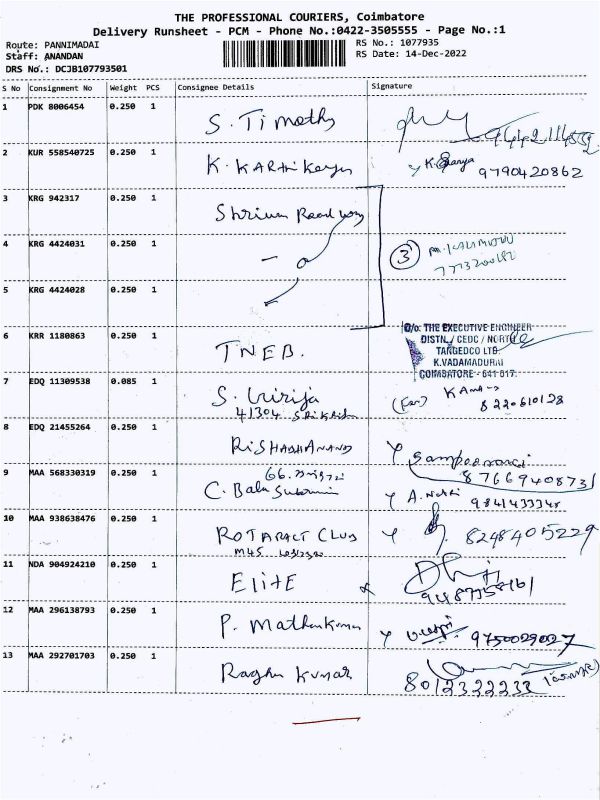 THE PROFESSIONAL COURIERS, Coimbatore
Delivery Runsheet - PCM - Phone No.:0422-3505555 - Page No.:1
Route: PANNIMADAI
Staff: ANANDAN
DRS No.: DCJB107793501
RS No.: 1077935
RS Date: 14-Dec-2022
S No Consignment No Weight PCS Consignee Details Signature
1 PDK 8006454 0.250 1 S. Timothy
2 KUR 558540725 0.250 1 K. Karthikeyan 9790420862
3 KRG 942317 0.250 1 Shriram Road
4 KRG 4424031 0.250 1 3
5 KRG 4424028 0.250 1
6 KRR 1180863 0.250 1 TNEB.
O/o. THE EXECUTIVE ENGINEER
DISTN. / CEDC / NORTH
TANGEDCO LTD.
K.VADAMADURAI
COIMBATORE - 641 017.
7 EDQ 11309538 0.085 1 S. Girija
41304 8220610128
8 EDQ 21455264 0.250 1 RISHABHANAND
8766940873
9 MAA 568330319 0.250 1 C. Bala
10 MAA 938638476 0.250 1 ROTARACT CLUB 8248405229
11 NDA 904924210 0.250 1 Elite
12 MAA 296138793 0.250 1 P. Mathankumar 9750029027
13 MAA 292701703 0.250 1 Raghu Kumar
8012322233